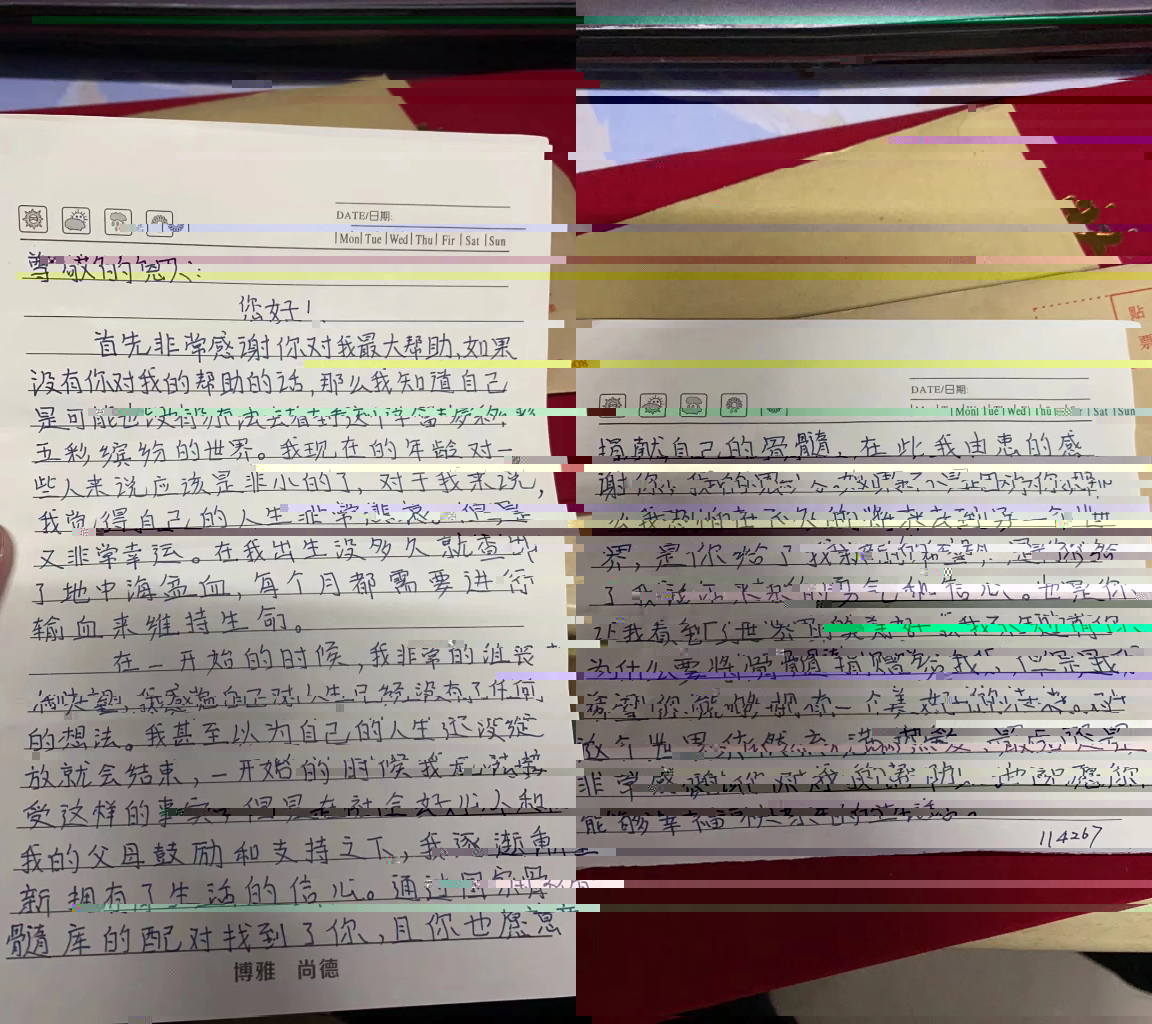 DATE/日期:
Mon Tue Wed Thu Fir Sat Sun
尊敬的恩人:
您好!
首先非常感谢你对我最大帮助,如果
没有你对我的帮助的话,那么我知道自己
是可能也没有办法去看到这个
五彩缤纷的世界。我现在的年龄对一
些人来说应该是非小的了,对于我来说,
我觉得自己的人生非常悲哀,但是
又非常幸运。在我出生没多久就查出
了地中海盆血,每个月都需要进行
输血来维持生命。
在一开始的时候,我非常的沮丧
和失望,我感觉自己对人生已经没有了任何
的想法。我甚至以为自己的人生还没绽
放就会结束,一开始的时候我无法接
受这样的事实,但是在社会好心人和
我的父母鼓励和支持之下,我逐渐重
新拥有了生活的信心。通过国家骨
髓库的配对找到了你,且你也愿意
博雅 尚德
貼
票
DATE/日期:
Mon Tue Wed Thu Sat Sun
捐献自己的骨髓,在此我由恵的感
谢你,我的恩人,如果不是因为你,那
么我恐怕在不久的将来去到另一个世
界,是你给了我
了我活下来的勇气和信心。也是你
让我看到了世界的美好,我不知道你
为什么要将骨髓捐赠给我,但是我
希望你能够拥有一个美好的
这个世界依然充满热爱,最后还是
非常感谢你对我的帮助。也祝愿你
能够幸福快乐的生活。
114267